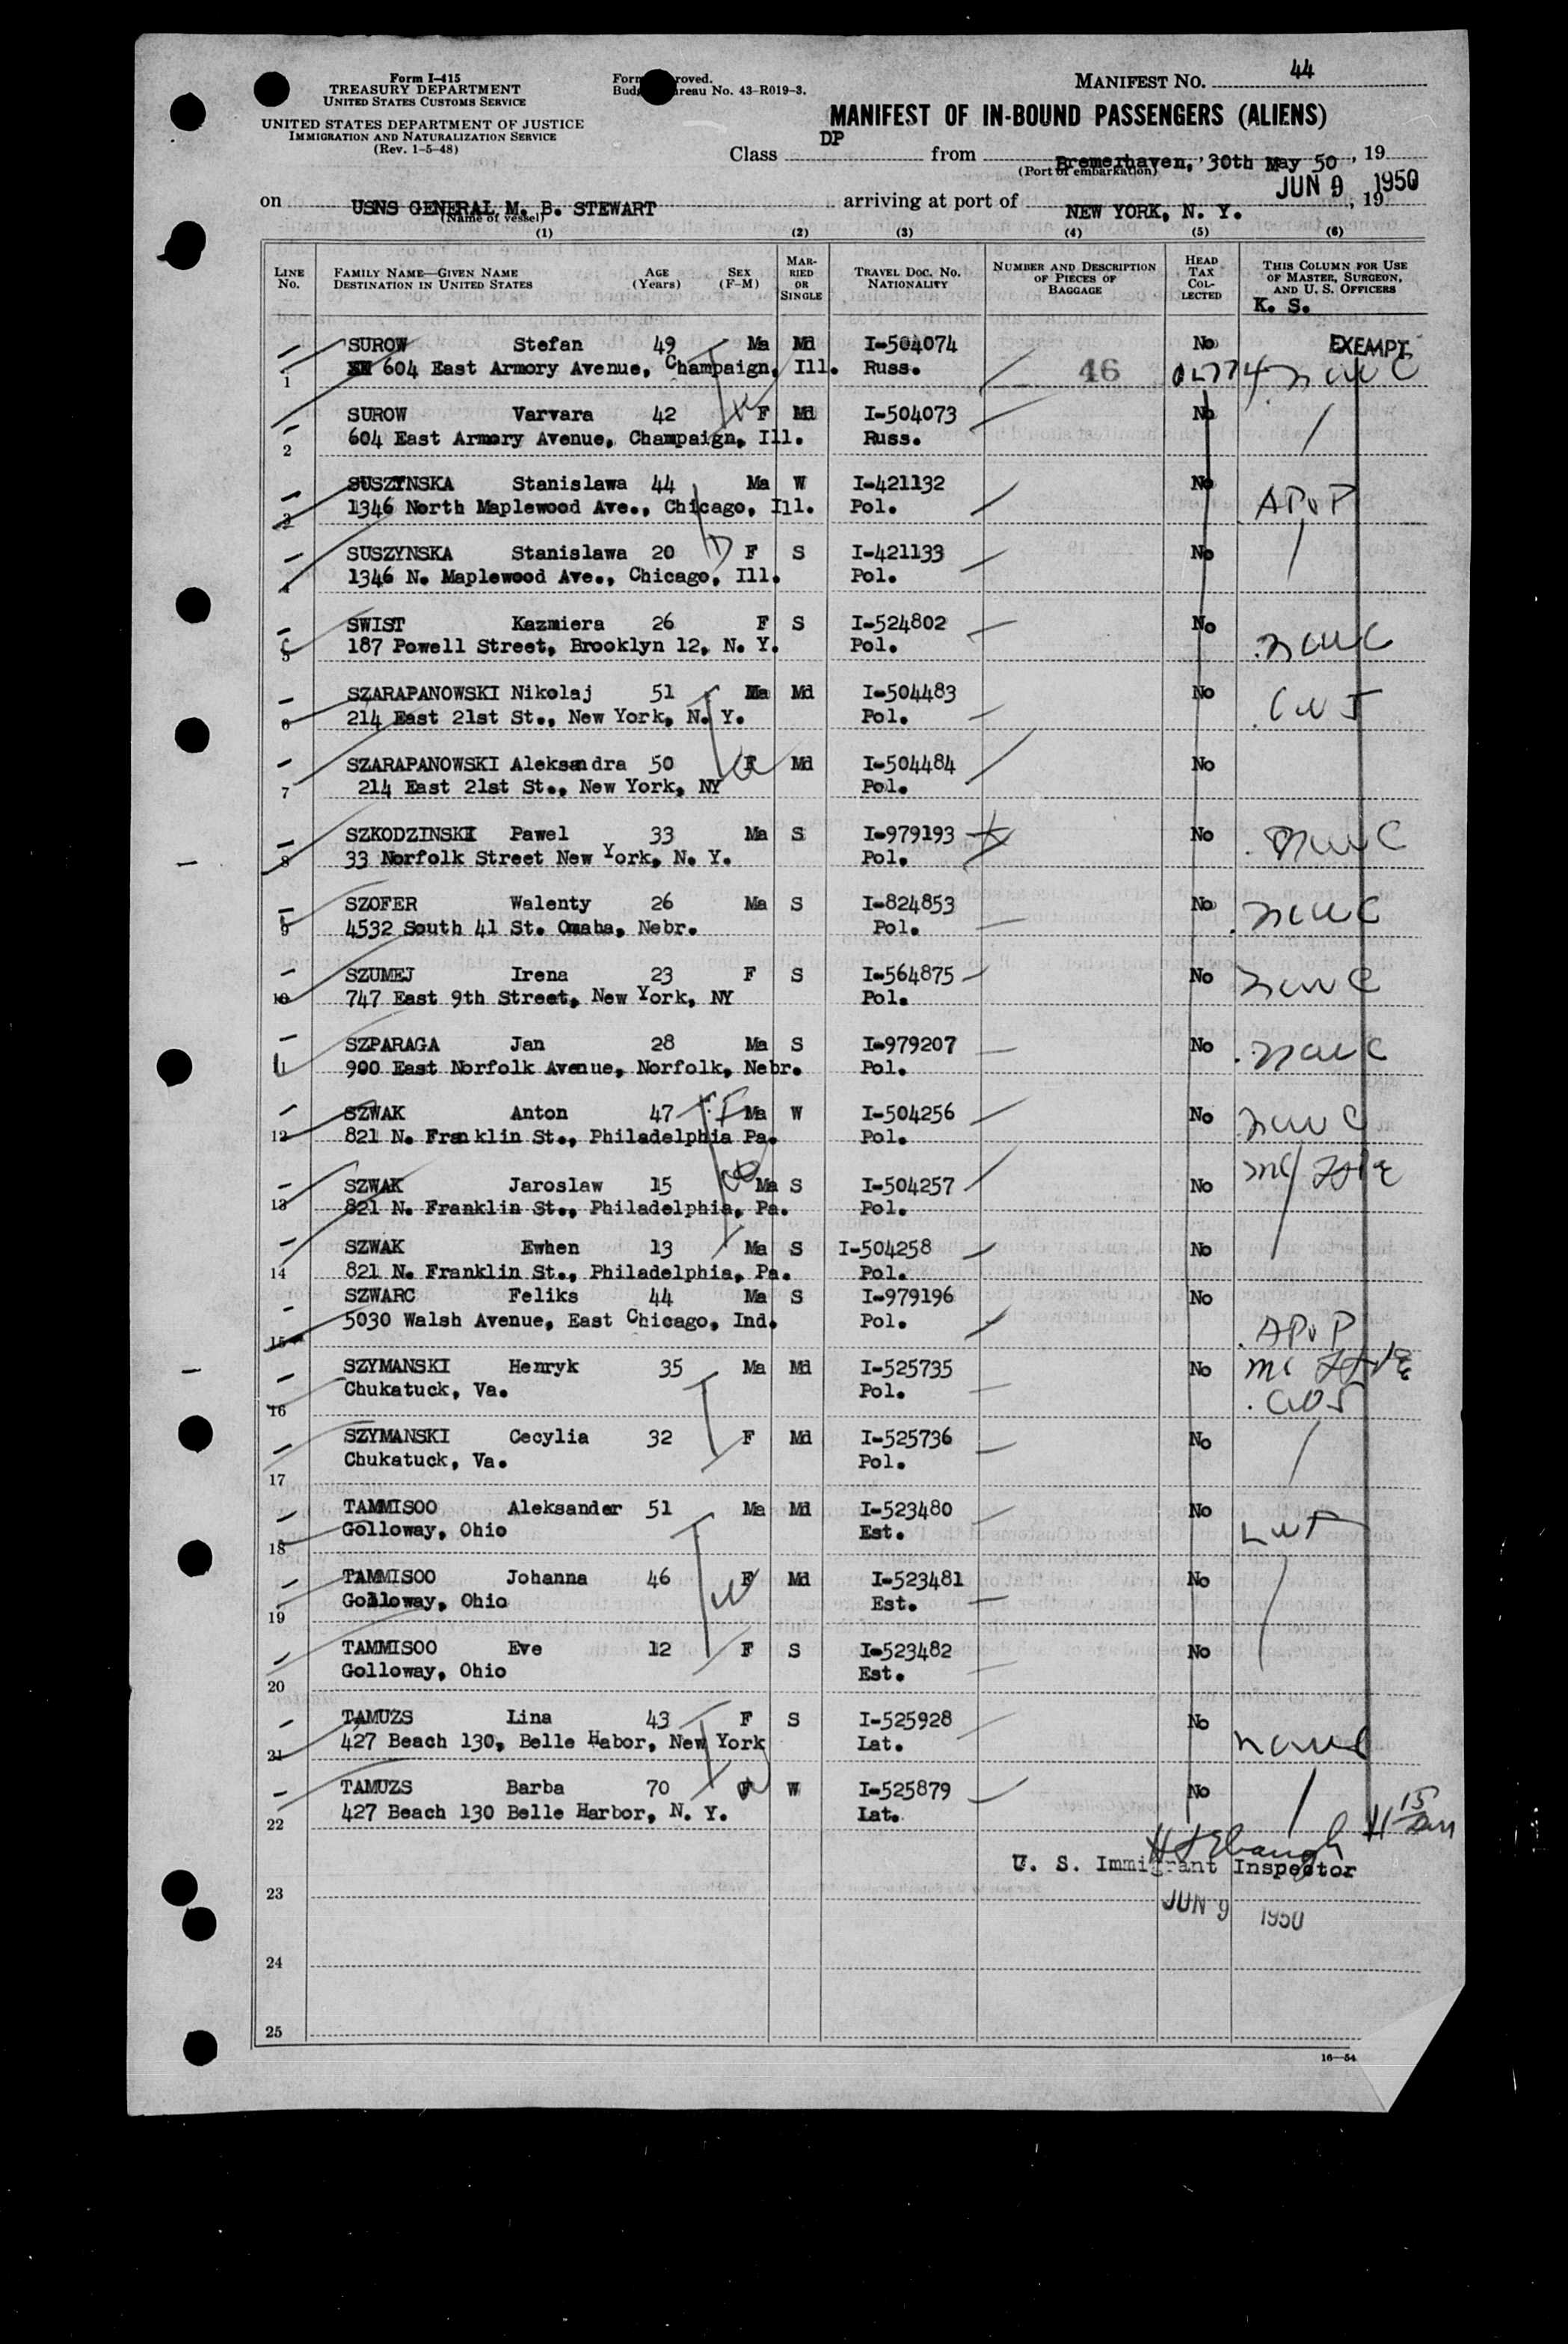 Form I-415
TREASURY DEPARTMENT
UNITED STATES CUSTOMS SERVICE
UNITED STATES DEPARTMENT OF JUSTICE
IMMIGRATION AND NATURALIZATION SERVICE
(Rev. 1-5-48)
No. 43-R019-3.
MANIFEST NO. 44
MANIFEST OF IN-BOUND PASSENGERS (ALIENS)
Class DP from Bremerhaven, 30th May 50, 19
(Port of embarkation)
on USNS GENERAL M. B. STEWART arriving at port of NEW YORK, N. Y. JUN 9 1950, 19
(Name of vessel)
(1) (2) (3) (4) (5) (6)
LINE NO. FAMILY NAME—GIVEN NAME DESTINATION IN UNITED STATES AGE (YEARS) SEX (F-M) MARRIED OR SINGLE TRAVEL DOC. NO. NATIONALITY NUMBER AND DESCRIPTION OF PIECES OF BAGGAGE HEAD TAX COLLECTED THIS COLUMN FOR USE OF MASTER, SURGEON, AND U. S. OFFICERS
K. S.
SUROW Stefan 49 Ma Md I-504074 No EXEMPT
1 604 East Armory Avenue, Champaign, Ill. Russ. 46
SUROW Varvara 42 F Md I-504073 No
2 604 East Armory Avenue, Champaign, Ill. Russ.
SUSZYNSKA Stanislawa 44 Ma W I-421132 No
3 1346 North Maplewood Ave., Chicago, Ill. Pol.
SUSZYNSKA Stanislawa 20 F S I-421133 No
4 1346 N. Maplewood Ave., Chicago, Ill. Pol.
SWIST Kazmiera 26 F S I-524802 No
5 187 Powell Street, Brooklyn 12, N. Y. Pol.
SZARAPANOWSKI Nikolaj 51 Ma Md I-504483 No
6 214 East 21st St., New York, N. Y. Pol.
SZARAPANOWSKI Aleksandra 50 F Md I-504484 No
7 214 East 21st St., New York, NY Pol.
SZKODZINSKI Pawel 33 Ma S I-979193 No
8 33 Norfolk Street New York, N. Y. Pol.
SZOFER Walenty 26 Ma S I-824853 No
9 4532 South 41 St. Omaha, Nebr. Pol.
SZUMEJ Irena 23 F S I-564875 No
10 747 East 9th Street, New York, NY Pol.
SZPARAGA Jan 28 Ma S I-979207 No
11 900 East Norfolk Avenue, Norfolk, Nebr. Pol.
SZWAK Anton 47 Ma W I-504256 No
12 821 N. Franklin St., Philadelphia Pa. Pol.
SZWAK Jaroslaw 15 Ma S I-504257 No
13 821 N. Franklin St., Philadelphia, Pa. Pol.
SZWAK Ewhen 13 Ma S I-504258 No
14 821 N. Franklin St., Philadelphia, Pa. Pol.
SZWARC Feliks 44 Ma S I-979196 No
15 5030 Walsh Avenue, East Chicago, Ind. Pol.
SZYMANSKI Henryk 35 Ma Md I-525735 No
16 Chukatuck, Va. Pol.
SZYMANSKI Cecylia 32 F Md I-525736 No
17 Chukatuck, Va. Pol.
TAMMISOO Aleksander 51 Ma Md I-523480 No
18 Golloway, Ohio Est.
TAMMISOO Johanna 46 F Md I-523481 No
19 Golloway, Ohio Est.
TAMMISOO Eve 12 F S I-523482 No
20 Golloway, Ohio Est.
TAMUZS Lina 43 F S I-525928 No
21 427 Beach 130, Belle Habor, New York Lat.
TAMUZS Barba 70 F W I-525879 No
22 427 Beach 130 Belle Harbor, N. Y. Lat.
U. S. Immigrant Inspector
23 JUN 9 1950
24
25
16—54